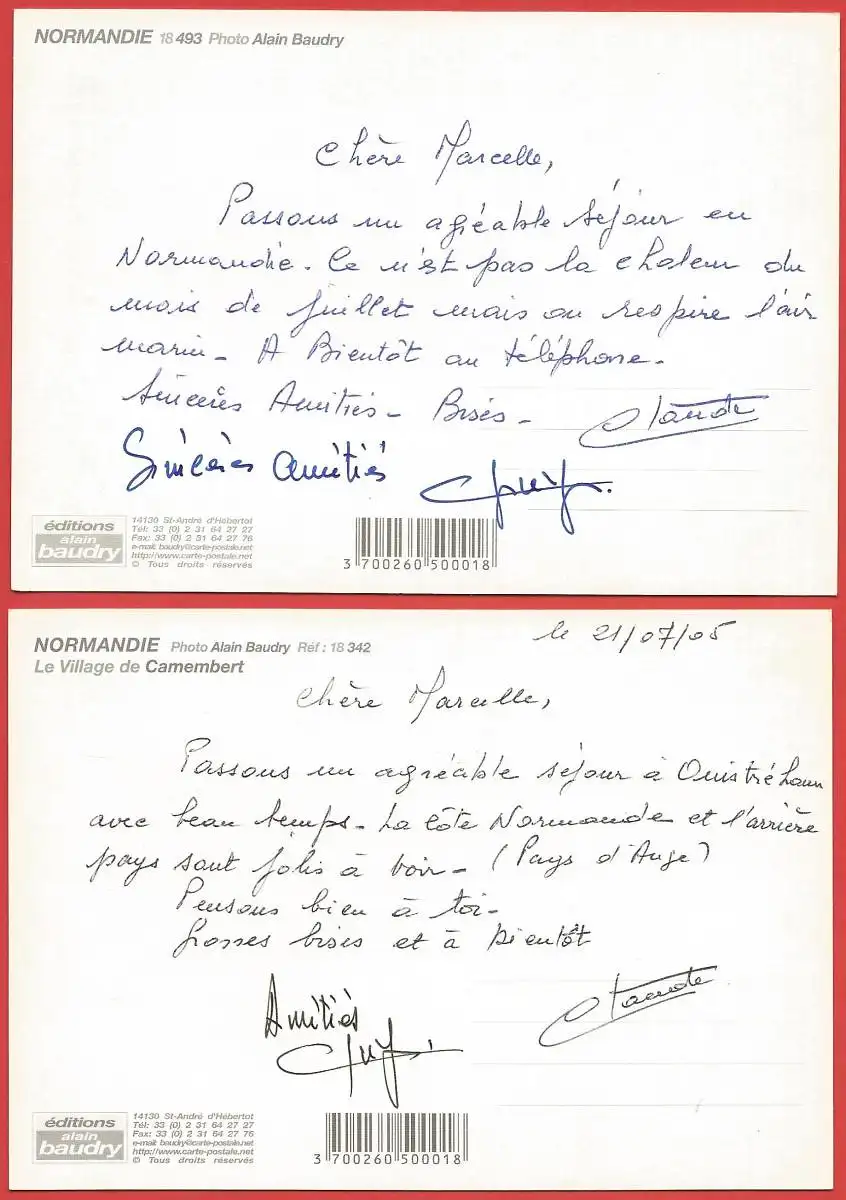 NORMANDIE 18 493 Photo Alain Baudry
Chère Marcelle,
Passons un agréable séjour en
Normandie. Ce n'est pas la chaleur du
mois de juillet mais on respire l'air
marin - A Bientôt au téléphone.
Sincères Amitiés - Bises - Claude
Sincères amitiés Guy.
éditions
alain
baudry
14130 St-André d'Hébertot
Tél: 33 (0) 2 31 64 27 27
Fax: 33 (0) 2 31 64 27 76
e-mail: baudry@carte-postale.net
http://www.carte-postale.net
© Tous droits réservés
3 700260 500018
NORMANDIE Photo Alain Baudry Réf : 18 342
Le Village de Camembert
le 21/07/05
Chère Marcelle,
Passons un agréable séjour à Ouistréham
avec beau temps - La côte Normande et l'arrière
pays sont jolis à voir - (Pays d'Auge)
Pensons bien à toi -
Grosses bises et à bientôt
Claude
Amitiés
Guy.
éditions
alain
baudry
14130 St-André d'Hébertot
Tél: 33 (0) 2 31 64 27 27
Fax: 33 (0) 2 31 64 27 76
e-mail: baudry@carte-postale.net
http://www.carte-postale.net
© Tous droits réservés
3 700260 500018